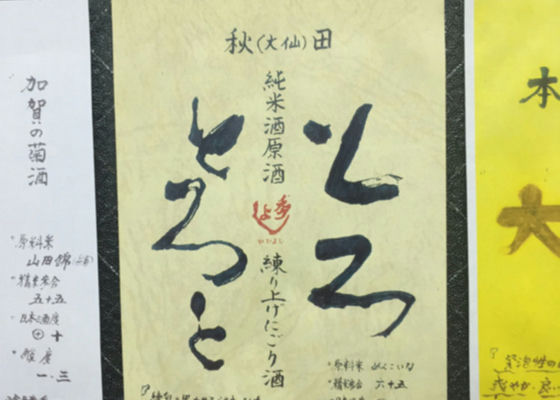 加賀の菊酒
・原料米
山田錦
・精米歩合
五十五
・日本酒度
⊕十
・酸度
一.三
秋(大仙)田
とろ
純米酒原酒
秀よし
ひでよし
練り上げにごり酒
とろっと
・原料米 めんこいな
・精米歩合 六十五
本
大